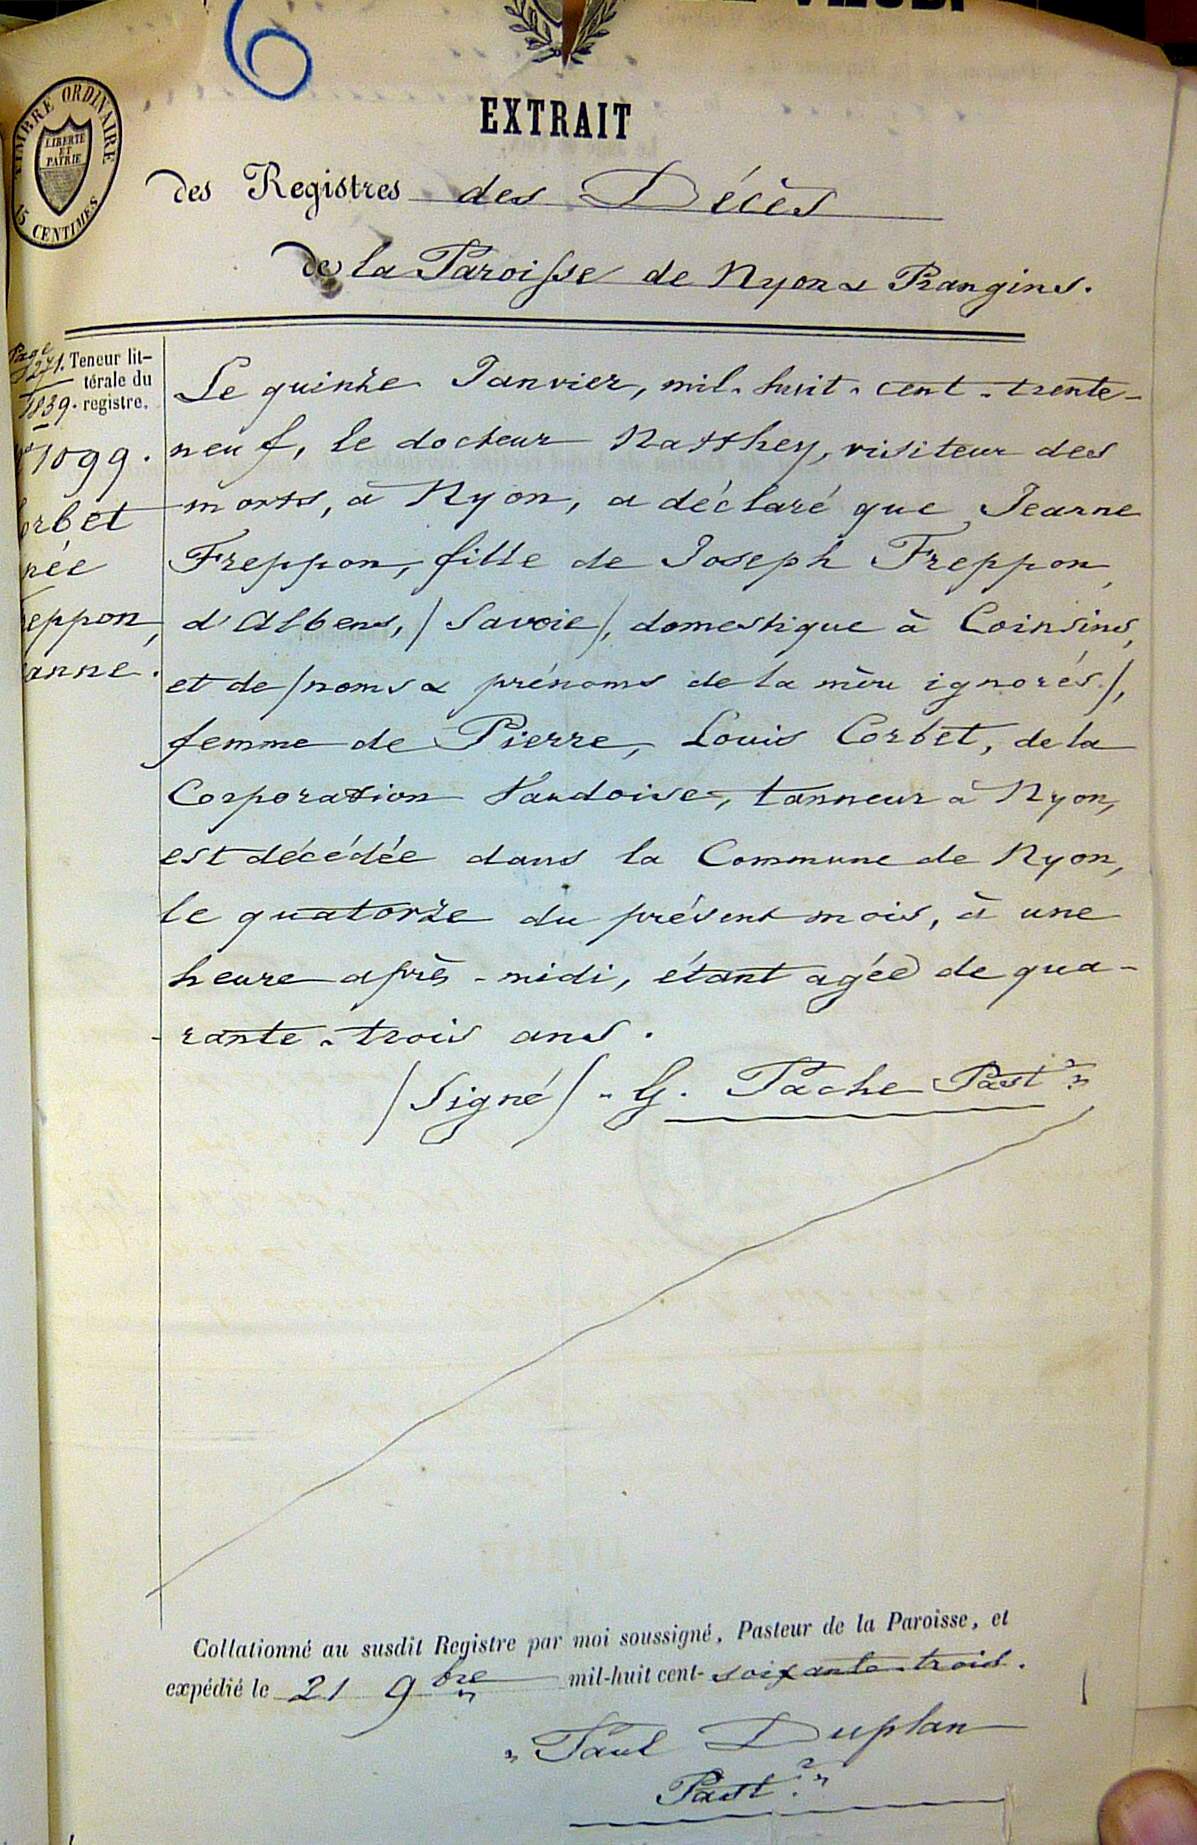 6
VAUD.
TIMBRE ORDINAIRE
LIBERTÉ
ET
PATRIE
15 CENTIMES
EXTRAIT
des Registres des Décès
de la Paroisse de Nyon & Prangins.
Page
271.
1839.
Teneur lit-
térale du
registre.
1099.
orbet
née
reppon,
anne.
Le quinze Janvier, mil-huit-cent-trente-
neuf, le docteur Natthey, visiteur des
morts, à Nyon, a déclaré que Jeanne
Freppon, fille de Joseph Freppon,
d'Albens, (Savoie), domestique à Coinsins,
et de (noms & prénoms de la mère ignorés),
femme de Pierre, Louis Corbet, de la
Corporation Vaudoise, tanneur à Nyon,
est décédée dans la Commune de Nyon,
le quatorze du présent mois, à une
heure après-midi, étant agée de qua-
rante-trois ans.
(Signé) " G. Pache Past.r "
Collationné au susdit Registre par moi soussigné, Pasteur de la Paroisse, et
expédié le 21 9bre mil-huit cent-soixante-trois.
" Paul Duplan
Past.r "